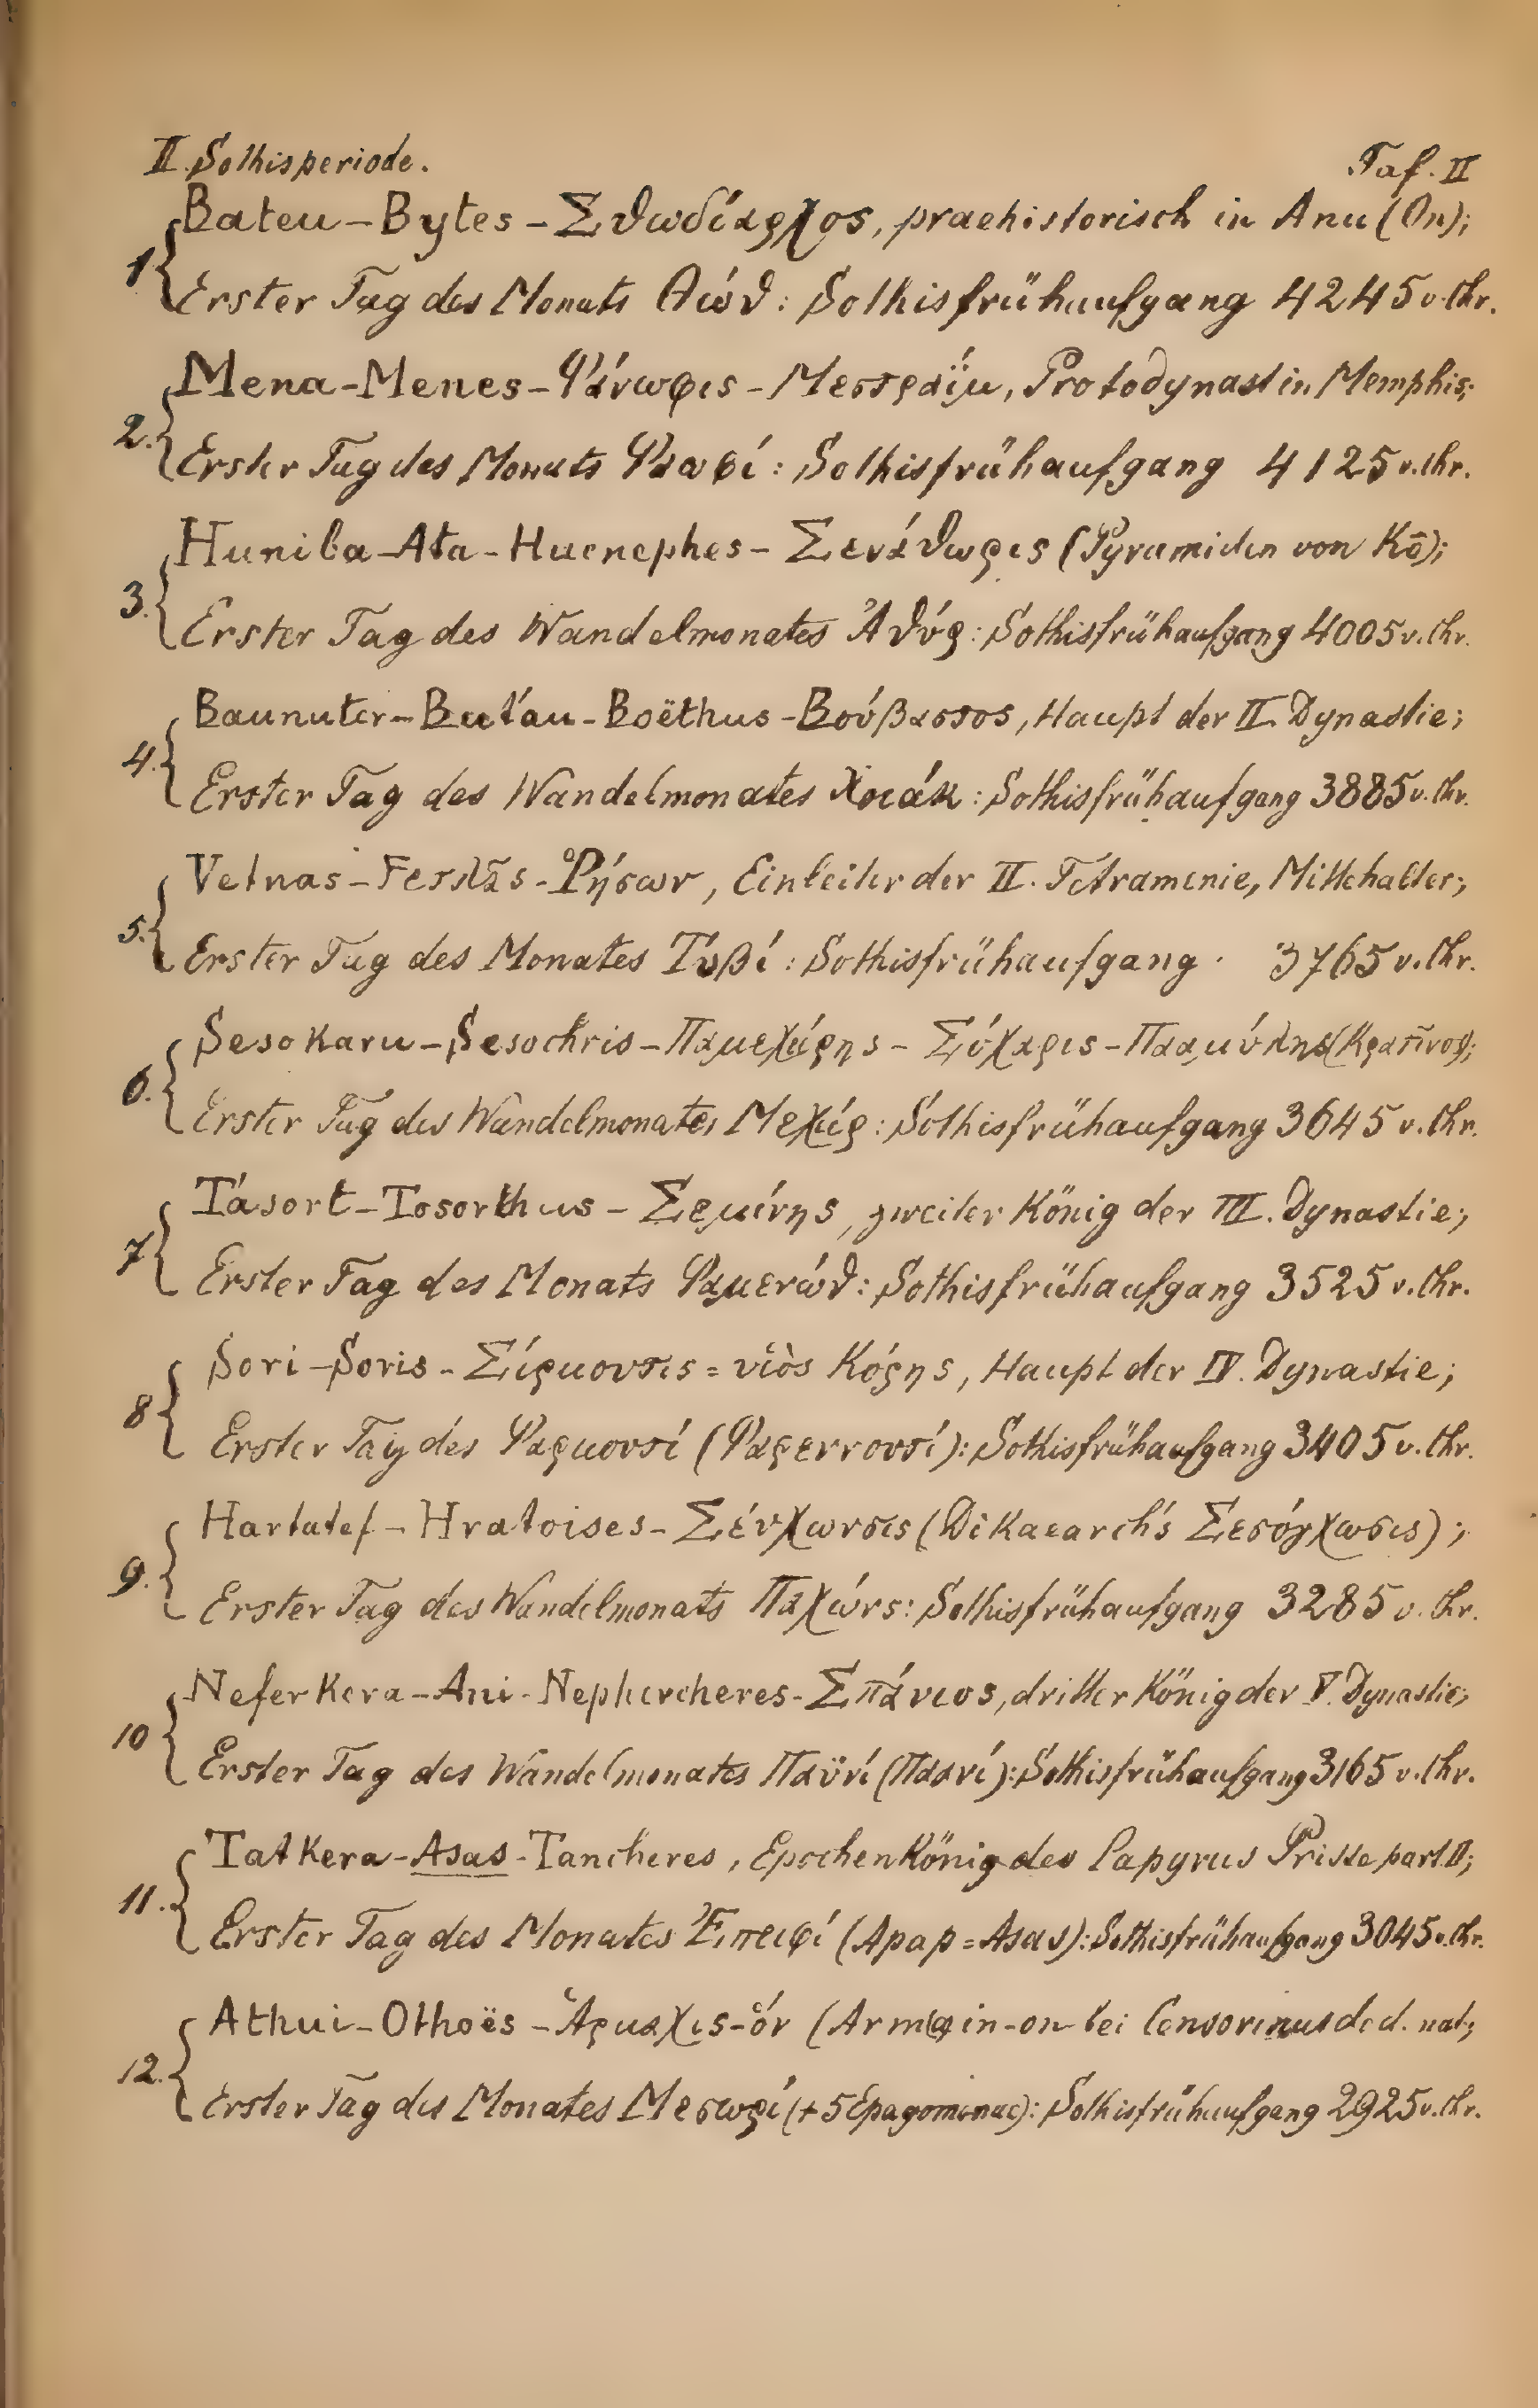 II. Sothisperiode.
Taf. II
Bateu – Bytes – Σθωδίαρχος, praehistorisch in Anu (On);
1 Erster Tag des Monats Θώϑ: Sothisfrühaufgang 4245 v. Chr.
Mena – Menes – Φάνωφις – Μεστραΐμ, Protodynast in Memphis;
2. Erster Tag des Monats Φαωφί: Sothisfrühaufgang 4125 v. Chr.
Huniba – Ata – Huenephes – Σενάϑωρις (Pyramiden von Kō);
3. Erster Tag des Wandelmonates Ἀϑύρ: Sothisfrühaufgang 4005 v. Chr.
Baunuter – Butau – Boëthus – Βούβαστος, Haupt der II. Dynastie;
4. Erster Tag des Wandelmonates Χοιάκ: Sothisfrühaufgang 3885 v. Chr.
Vetnas – – Ῥήσων, Einleiter der II. Tetramenie, Mittehalter;
5. Erster Tag des Monates Τυβί: Sothisfrühaufgang 3765 v. Chr.
Sesokaru – Sesochris – Παμεχάρης – Σύχαρις – Πααμύλης (Κρατῖνος);
6. Erster Tag des Wandelmonates Μεχίρ: Sothisfrühaufgang 3645 v. Chr.
Tásort – Tosorthus – Σεμίνης, zweiter König der III. Dynastie;
7 Erster Tag des Monats Φαμενώϑ: Sothisfrühaufgang 3525 v. Chr.
Sori – Soris – Σάρμουτις = υἱὸς Κόρης, Haupt der IV. Dynastie;
8 Erster Tag des Φαρμουτί (Φαρεννουτί): Sothisfrühaufgang 3405 v. Chr.
Hartatef – Hratoises – Σένχωνσις (Dikaearch's Σεσόγχωσις);
9. Erster Tag des Wandelmonats Παχώνς: Sothisfrühaufgang 3285 v. Chr.
Neferkera – Ani – Nephercheres – Σπάνιος, dritter König der V. Dynastie;
10 Erster Tag des Wandelmonates Παϋνί (Παανί): Sothisfrühaufgang 3165 v. Chr.
Tatkera – Asas – Tancheres, Epochenkönig des Papyrus Prisse part. II;
11. Erster Tag des Monates Ἐπειφί (Apap = Asas): Sothisfrühaufgang 3045 v. Chr.
Athui – Othoës – Ἁρμαχις-ὅν (Armain-on bei Censorinus de d. nat;
12. Erster Tag des Monates Μεσωρί (+ 5 Epagomenae): Sothisfrühaufgang 2925 v. Chr.